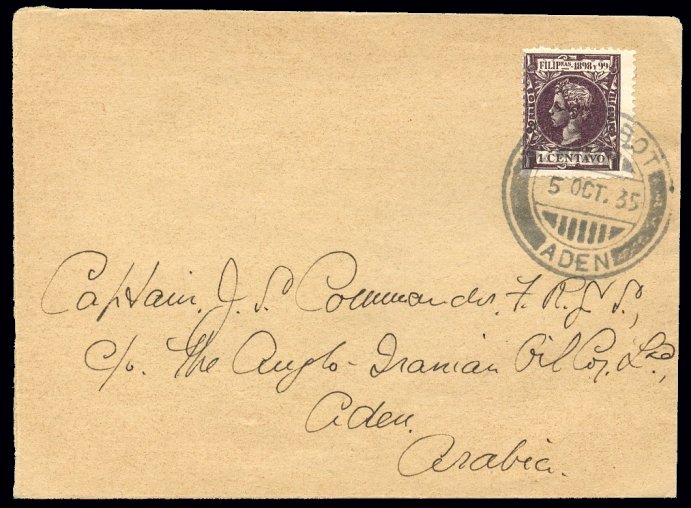 FILIPNAS.-1898 Y 99
1 CENTAVO
5 OCT. 35
ADEN
Captain. J. S.
c/o. The Anglo-Iranian Oil Coy, Ltd,
Aden.
Arabia.